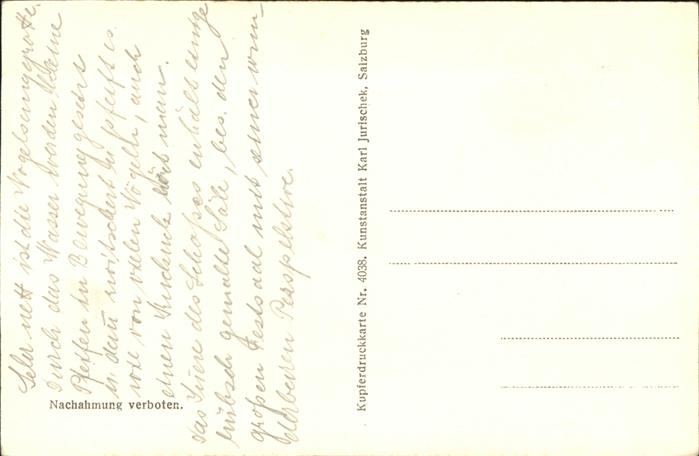 Sehr nett ist die Vogelsanggrotte.
Durch das Wasser werden kleine
Pfeifen in Bewegung gesetzt
u. dem zwitschert u. pfeift es
wie von vielen Vögeln, auch
einen Kuckuck hört man.
Das Innere des Schloßes enthält einige
hübsch gemalte Säle, bes. den
großen Festsaal mit seiner wun
derbaren Perspektive.
Nachahmung verboten.
Kupferdruckkarte Nr. 4038. Kunstanstalt Karl Jurischek, Salzburg